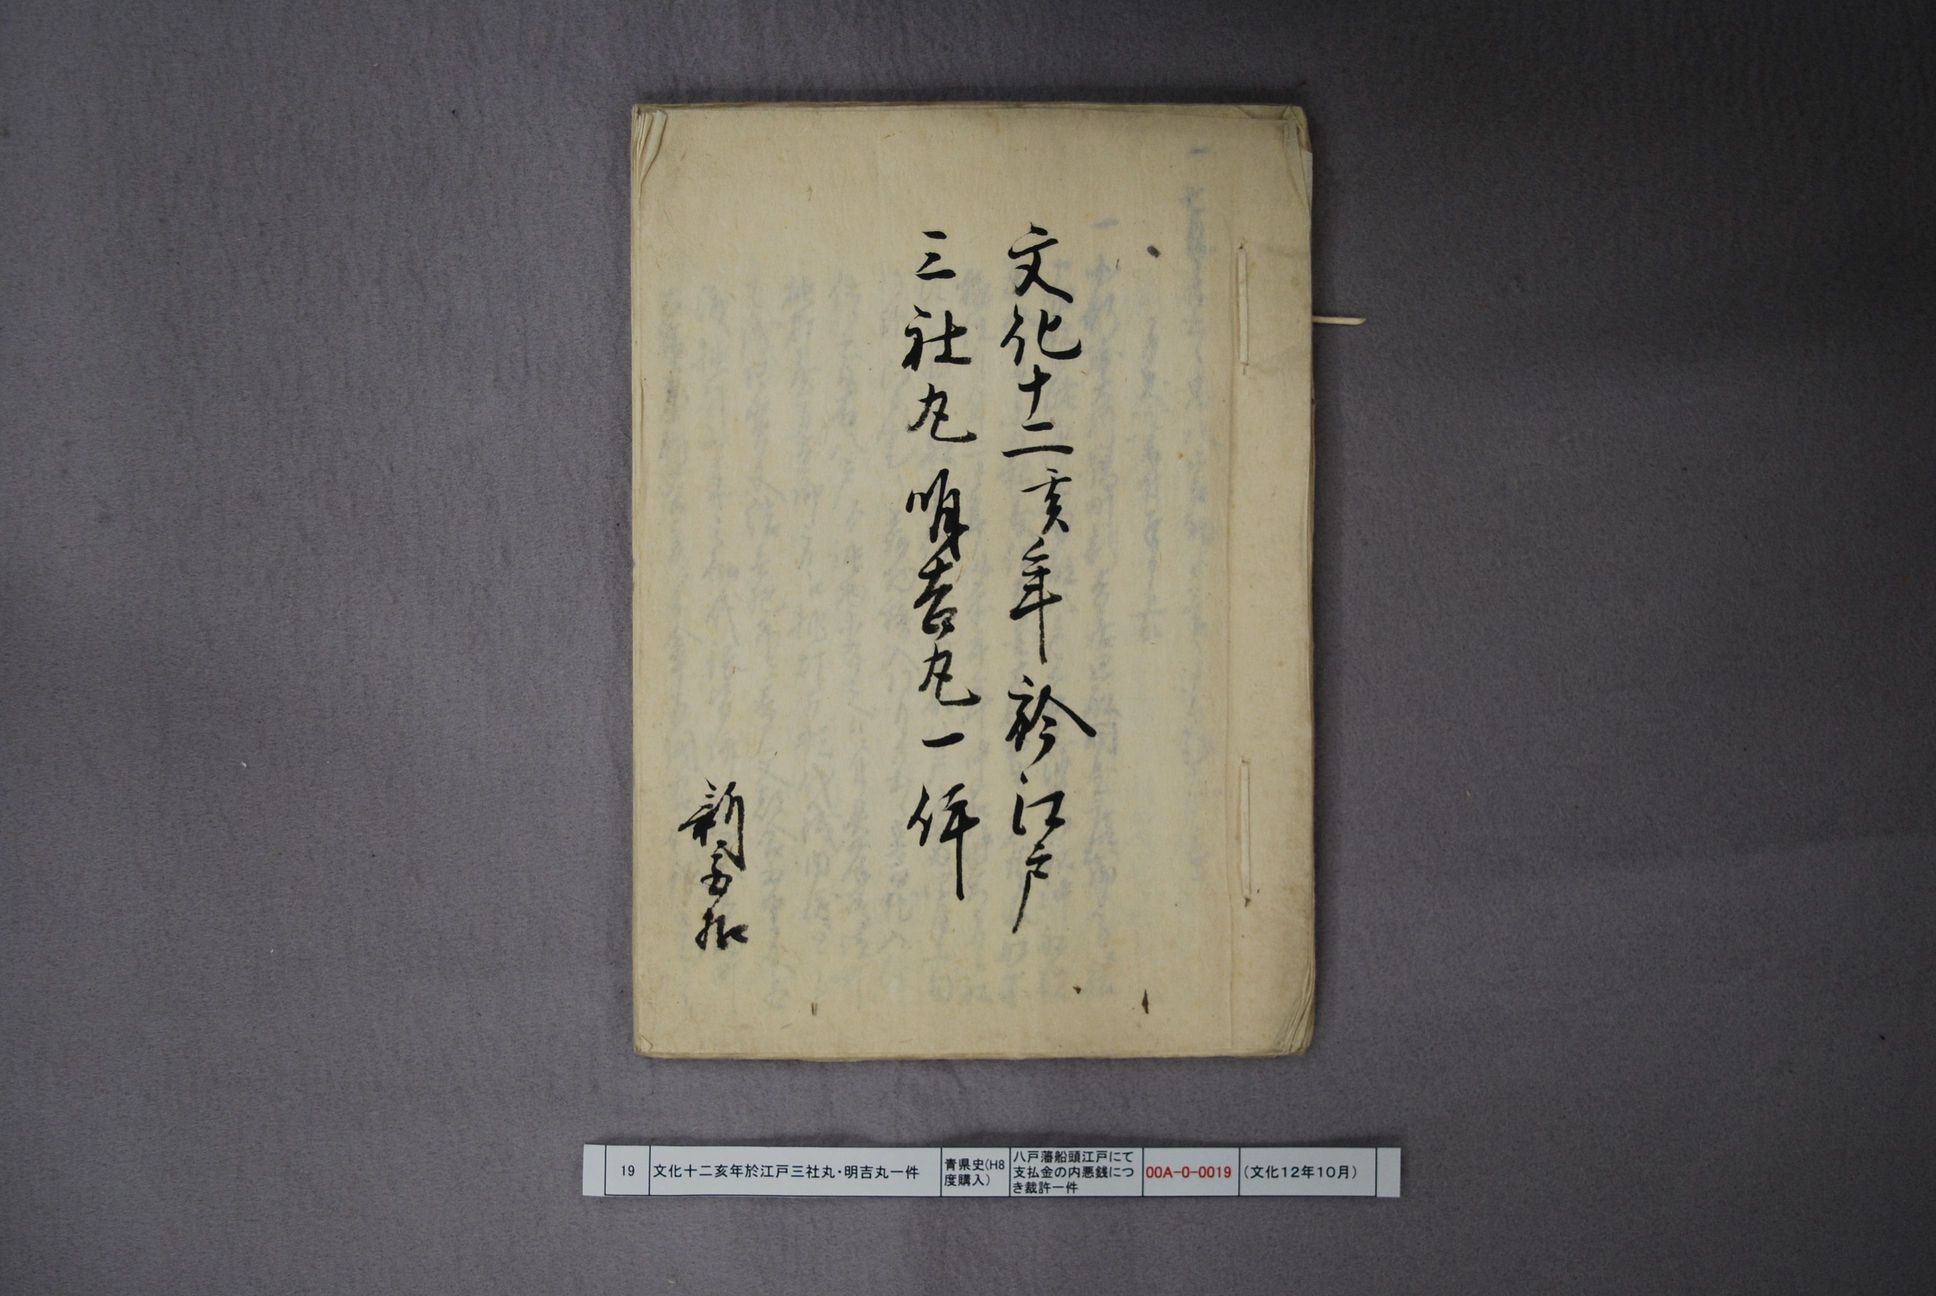 文化十二亥年於江戸
三社丸明吉丸一件
19
文化十二亥年於江戸三社丸・明吉丸一件
青県史(H8
度購入)
八戸藩船頭江戸にて
支払金の内悪銭につ
き裁許一件
00A-0-0019
(文化12年10月)